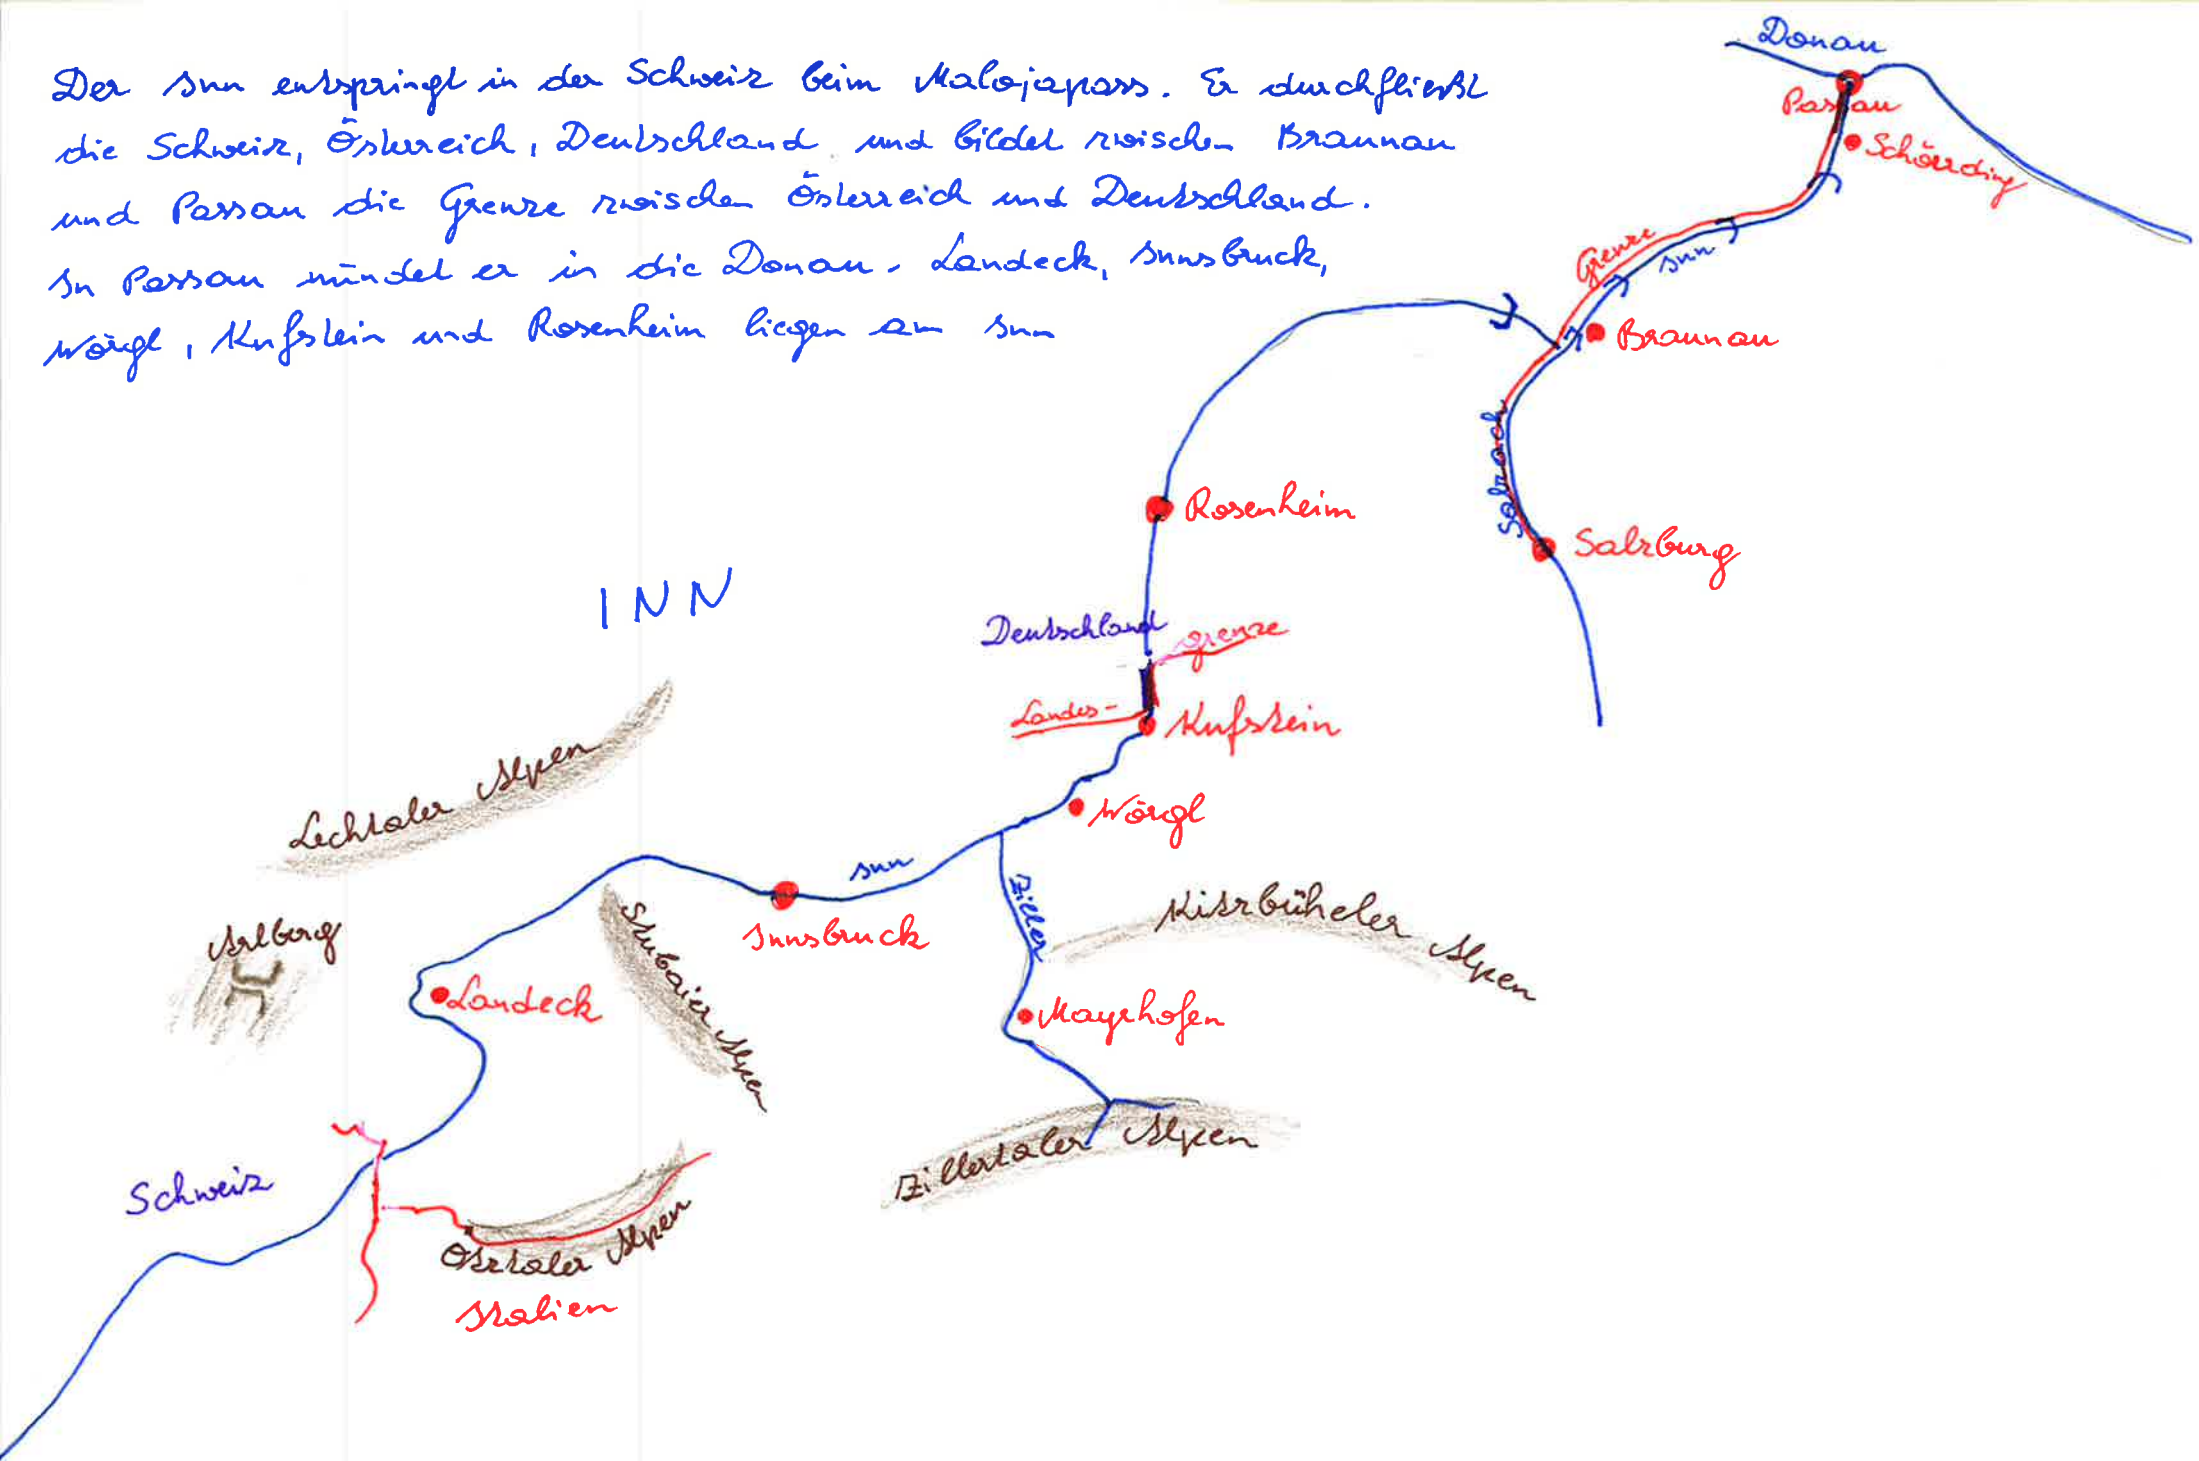 Der Inn entspringt in der Schweiz beim Malojapass. Er durchfließt
die Schweiz, Österreich, Deutschland und bildet zwischen Braunau
und Passau die Grenze zwischen Österreich und Deutschland.
In Passau mündet er in die Donau. Landeck, Innsbruck,
Wörgl, Kufstein und Rosenheim liegen am Inn
Donau
Passau
Schärding
Grenze
Inn
Braunau
Salzach
Rosenheim
Salzburg
INN
Deutschland
Grenze
Landes-
Kufstein
Lechtaler Alpen
Wörgl
Inn
Ziller
Innsbruck
Kitzbüheler Alpen
Arlberg
Stubaier Alpen
Landeck
Mayrhofen
Zillertaler Alpen
Schweiz
Ötztaler Alpen
Italien